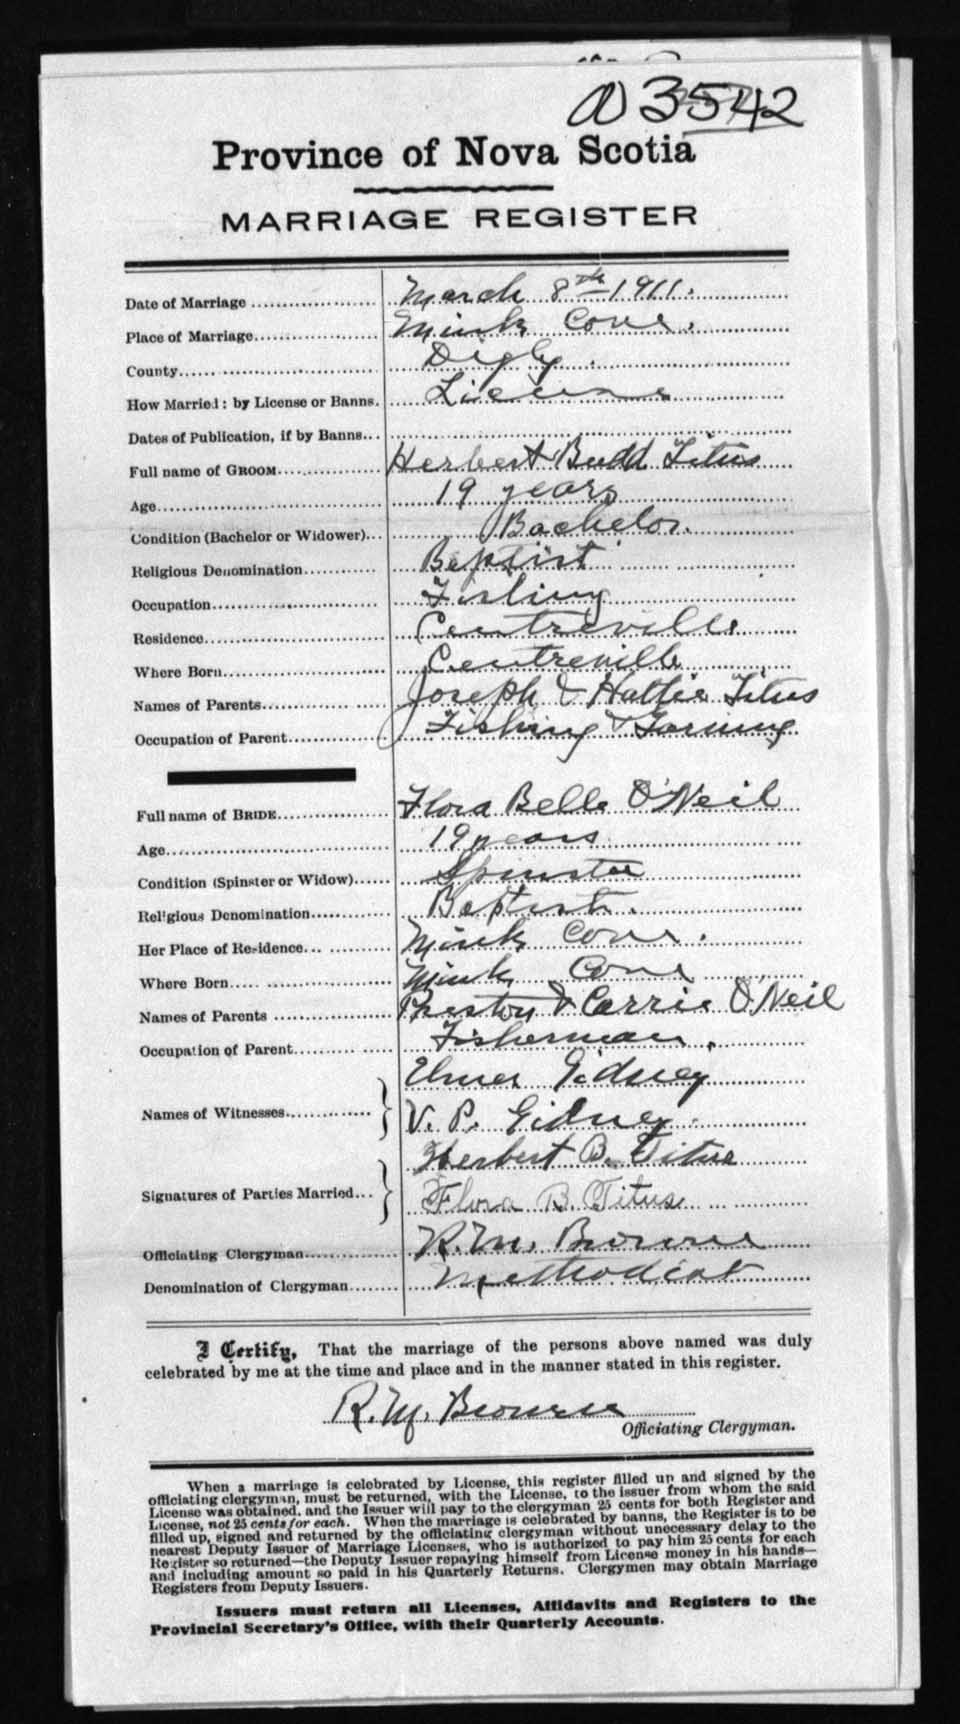 3542
Province of Nova Scotia
MARRIAGE REGISTER
Date of Marriage March 8th 1911.
Place of Marriage Mink Cove.
County Digby.
How Married: by License or Banns. License
Dates of Publication, if by Banns
Full name of GROOM Herbert Budd Titus
Age 19 years
Condition (Bachelor or Widower) Bachelor.
Religious Denomination Baptist
Occupation Fishing
Residence Centreville
Where Born Centreville
Names of Parents Joseph & Hattie Titus
Occupation of Parent Fishing & Farming
Full name of BRIDE Flora Belle O'Neil
Age 19 years
Condition (Spinster or Widow) Spinster
Religious Denomination Baptist.
Her Place of Residence Mink Cove.
Where Born Mink Cove
Names of Parents Preston & Carrie O'Neil
Occupation of Parent Fisherman.
Elmer Gidney
Names of Witnesses
V. P. Gidney.
Herbert B. Titus
Signatures of Parties Married
Flora B. Titus
Officiating Clergyman R. M. Browne
Denomination of Clergyman Methodist
I Certify, That the marriage of the persons above named was duly
celebrated by me at the time and place and in the manner stated in this register.
R. M. Browne
Officiating Clergyman.
When a marriage is celebrated by License, this register filled up and signed by the
officiating clergyman, must be returned, with the License, to the issuer from whom the said
License was obtained, and the Issuer will pay to the clergyman 25 cents for both Register and
License, not 25 cents for each. When the marriage is celebrated by banns, the Register is to be
filled up, signed and returned by the officiating clergyman without unnecessary delay to the
nearest Deputy Issuer of Marriage Licenses, who is authorized to pay him 25 cents for each
Register so returned—the Deputy Issuer repaying himself from License money in his hands—
and including amount so paid in his Quarterly Returns. Clergymen may obtain Marriage
Registers from Deputy Issuers.
Issuers must return all Licenses, Affidavits and Registers to the
Provincial Secretary's Office, with their Quarterly Accounts.